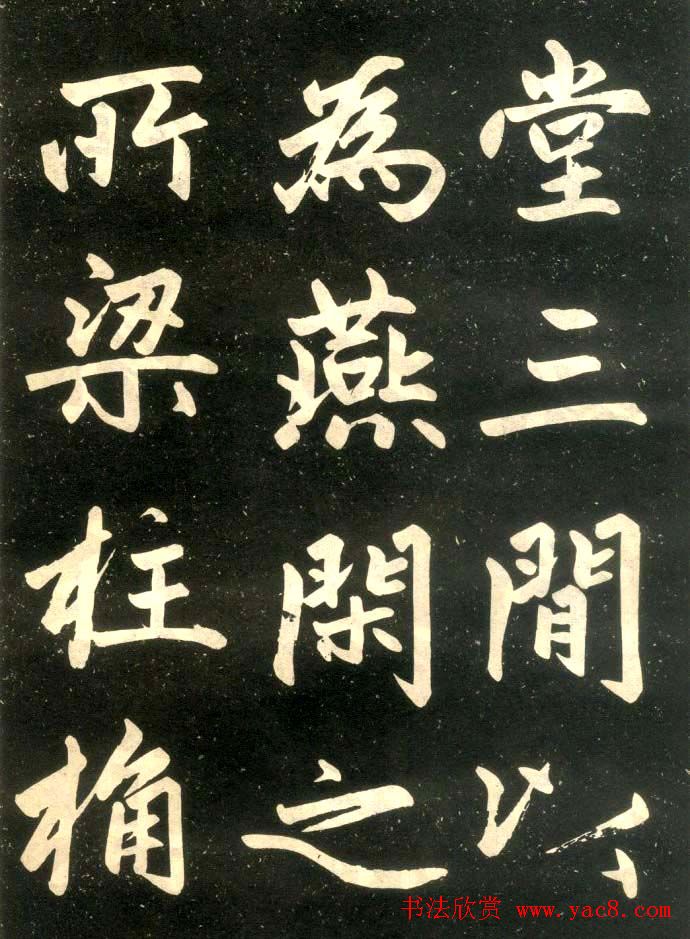 堂三閒以
為燕閑之
所梁柱桷
书法欣赏 www.yac8.com